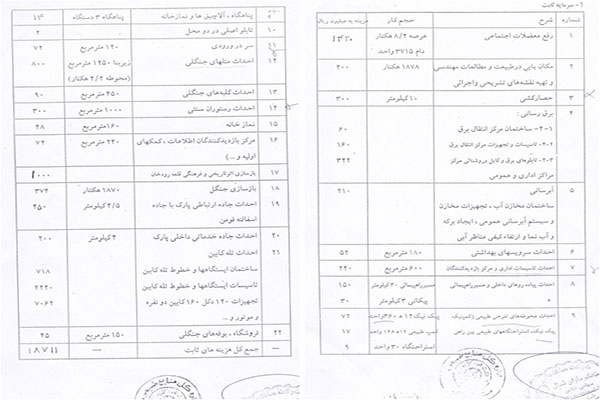 ۱- سرمایه ثابت
شماره شرح حجم کار هزینه به میلیون ریال
۱ رفع معضلات اجتماعی عرصه ۸/۲ هکتار
دام ۳۷۱۵ واحد
۲ مکان یابی درطبیعت و مطالعات مهندسی ۱۸۷۸ هکتار ۲۰۰
و تهیه نقشه‌های تشریحی واجرائی
۳ حصارکشی ۱۰ کیلومتر ۳۰۰
۴ برق رسانی :
۴-۱- ساختمان مرکز انتقال برق ۶۰
۴-۲- تاسیسات و تجهیزات مرکز انتقال برق ۱۶۰
۴-۳- تابلوهای برق و کابل وروشنائی مرکز ۳۲۲
مراکز اداری و عمومی
۵ آبرسانی ۲۱۰
ساختمان مخازن آب ، تجهیزات مخازن
و سیستم آبرسانی عمومی ، ایجاد برکه
و آب نما و ارتقاء کیفی مناظر آبی
۶ احداث سرویسهای بهداشتی ۱۸۰ مترمربع ۵۴
۷ احداث تاسیسات اداری و مرکز بازدیدکنندگان ۶۰۰ مترمربع ۲۴۰
۸ احداث پیاده روهای داخلی و مسیرراهپیمائی مسیرراهپیمائی ۲۰ کیلومتر ۱۵۰
پیکانی ۳ کیلومتر ۳۰
۹ احداث محوطه‌های تفرجی طبیعی (کمپ،پیک نیک ۷۲
پیک نیک، استراحتگاههای طبیعی بین راهی ۱۷
استراحتگاه ۳۰ واحد ۹
پناهگاه ، آلاچیق ها و نمازخانه پناهگاه ۳ دستگاه
۱۰ تابلو اصلی در دو محل ۲
۱۱ سر در ورودی ۱۲۰ مترمربع ۷۲
۱۲ احداث متلهای جنگلی زیربنا ۱۲۵۰ مترمربع ۸۰۰
(محوطه ۲/۲ هکتار)
۱۳ احداث کلبه‌های جنگلی ۴۵۰ مترمربع ۹۰
۱۴ احداث رستوران سنتی ۱۰۰۰ مترمربع ۳۰۰
۱۵ نماز خانه ۱۶۰ مترمربع ۴۸
۱۶ مرکز بازدیدکنندگان اطلاعات ، کمکهای ۲۴۰ مترمربع ۷۲
اولیه و ...)
۱۷ بازسازی آثارتاریخی و فرهنگی قلعه رودخان ۱۰۰۰
۱۸ بازسازی جنگل ۱۸۷۰ هکتار ۳۷۲
۱۹ احداث جاده ارتباطی پارک با جاده ۴/۵ کیلومتر ۴۵۰
اسفالته فومن
۲۰ احداث جاده خدماتی داخلی پارک ۴ کیلومتر ۲۰۰
۲۱ احداث تله کابین
ساختمان ایستگاهها و خطوط تله کابین ۷۱۸
تاسیسات ایستگاهها و خطوط تله کابین ۲۲۲۰
تجهیزات ۱۲۰ دکل ۱۶۰ کابین دو نفره ۷۰۶۲
و موتور و ...
۲۲ فروشگاه ، بوفه‌های جنگلی ۱۵۰ مترمربع ۴۵
— جمع کل هزینه های ثابت — ۱۸۷۱۱